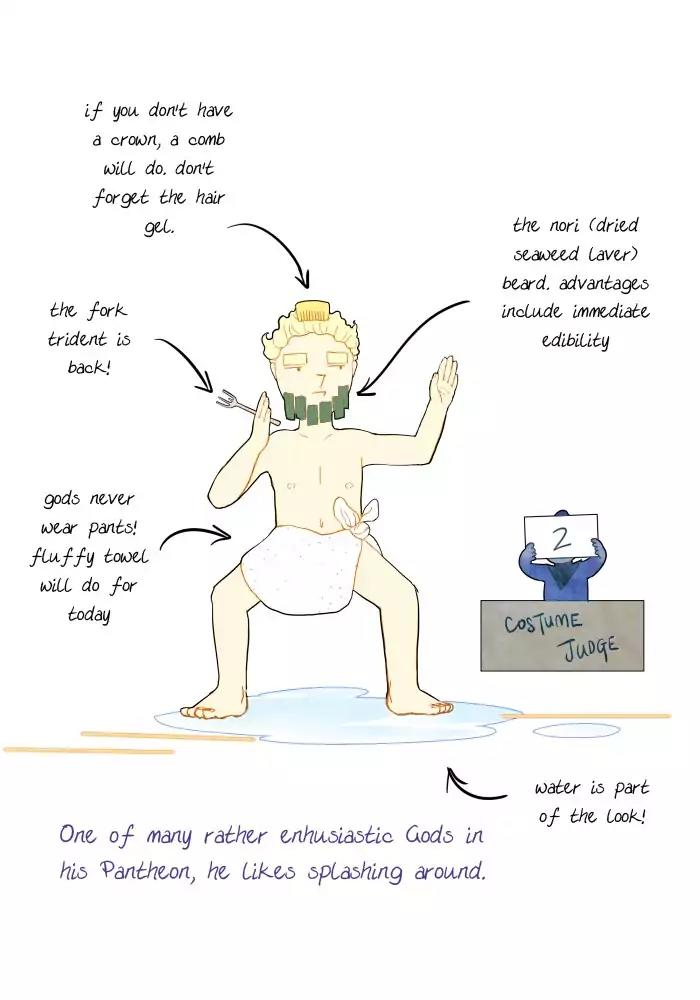 if you don't have
a crown, a comb
will do. don't
forget the hair
gel.
the nori (dried
seaweed laver)
beard. advantages
include immediate
edibility
the fork
trident is
back!
gods never
wear pants!
fluffy towel
will do for
today
2
COSTUME
JUDGE
water is part
of the look!
One of many rather enhusiastic Gods in
his Pantheon, he likes splashing around.